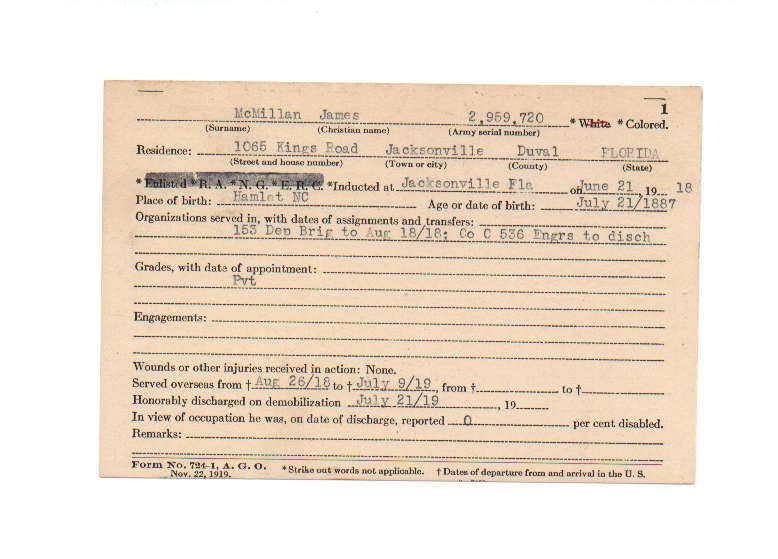 1
McMillan James 2,959,720 * White * Colored.
(Surname) (Christian name) (Army serial number)
Residence: 1065 Kings Road Jacksonville Duval FLORIDA
(Street and house number) (Town or city) (County) (State)
* Enlisted * R. A. * N. G. * E. R. C. *Inducted at Jacksonville Fla on June 21, 19 18
Place of birth: Hamlet NC Age or date of birth: July 21/1887
Organizations served in, with dates of assignments and transfers:
153 Dep Brig to Aug 18/18; Co C 536 Engrs to disch
Grades, with date of appointment:
Pvt
Engagements:
Wounds or other injuries received in action: None.
Served overseas from † Aug 26/18 to † July 9/19, from † to †
Honorably discharged on demobilization July 21/19, 19
In view of occupation he was, on date of discharge, reported 0 per cent disabled.
Remarks:
Form No. 724-1, A. G. O. *Strike out words not applicable. † Dates of departure from and arrival in the U. S.
Nov. 22, 1919.